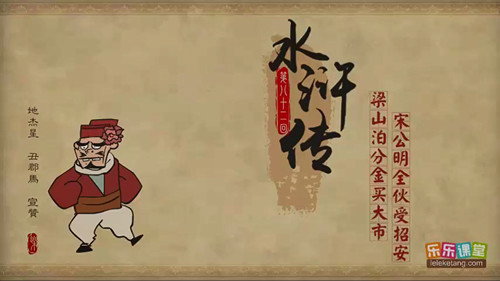 水浒传
第八十二回
梁山泊分金买大市
宋公明全伙受招安
地杰星 丑郡馬 宣贊
乐乐课堂
leleketang.com